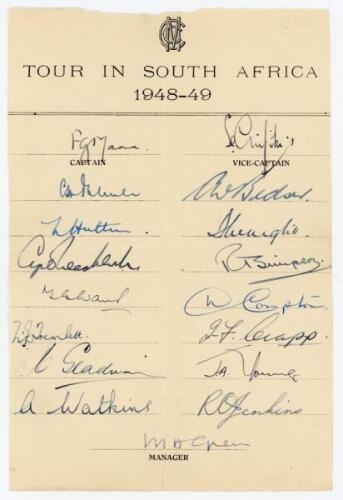 MCC
TOUR IN SOUTH AFRICA
1948-49
F G Mann. S. C. Griffith
CAPTAIN VICE-CAPTAIN
A V Bedser.
L Hutton.
R T Simpson.
D Compton.
M F Tremlett. J. F. Crapp.
C Gladwin J A Young
A Watkins R O Jenkins
M A Green
MANAGER